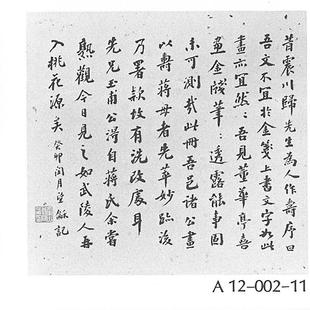 昔震川歸先生為人作壽序曰
吾文不宜於金箋上書文字如此
畫亦宜然吾見董華亭喜
畫金箋筆透露能事固
未可測哉此冊吾邑諸公畫
以壽蔣母者先華妙
乃署款故有洗改處耳
先兄玉甫公得自蔣氏余嘗
熟觀今日見之如武陵人再
入桃花源矣癸卯閏月 穌記
A 12-002-11